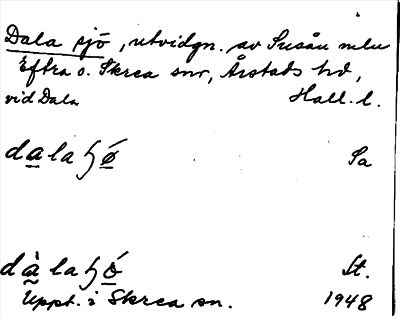 Dala sjö, utvidgn. av Susån mlu
Eftra o. Skrea snr, Årstads hd,
vid Dala Hall. l.
dalaɧö Sa
dàlaɧó St.
Uppt. i Skrea sn. 1948